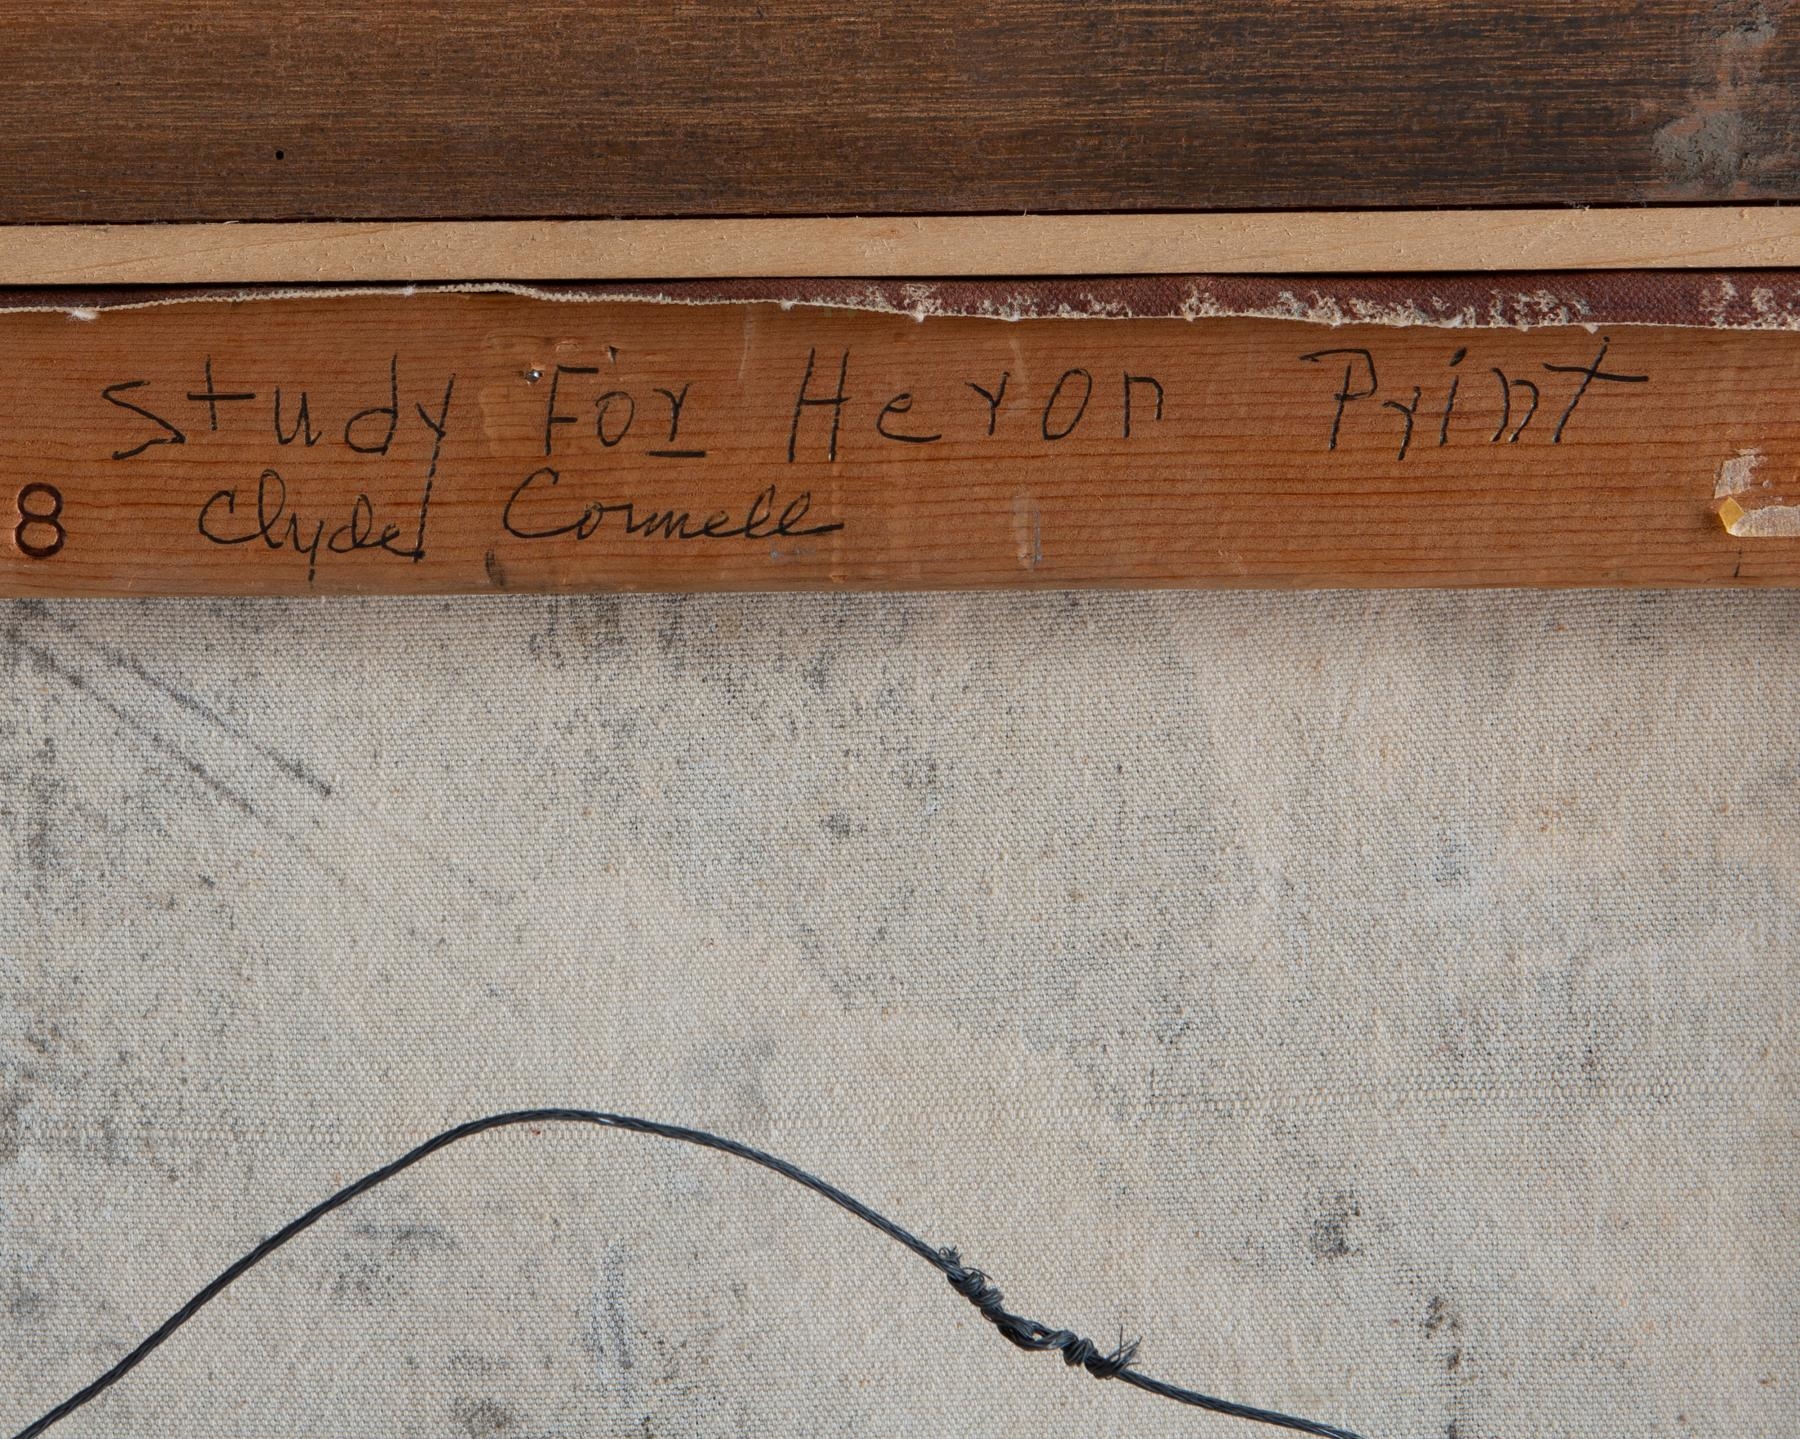 Study For Heron Print
8 Clyde Connell